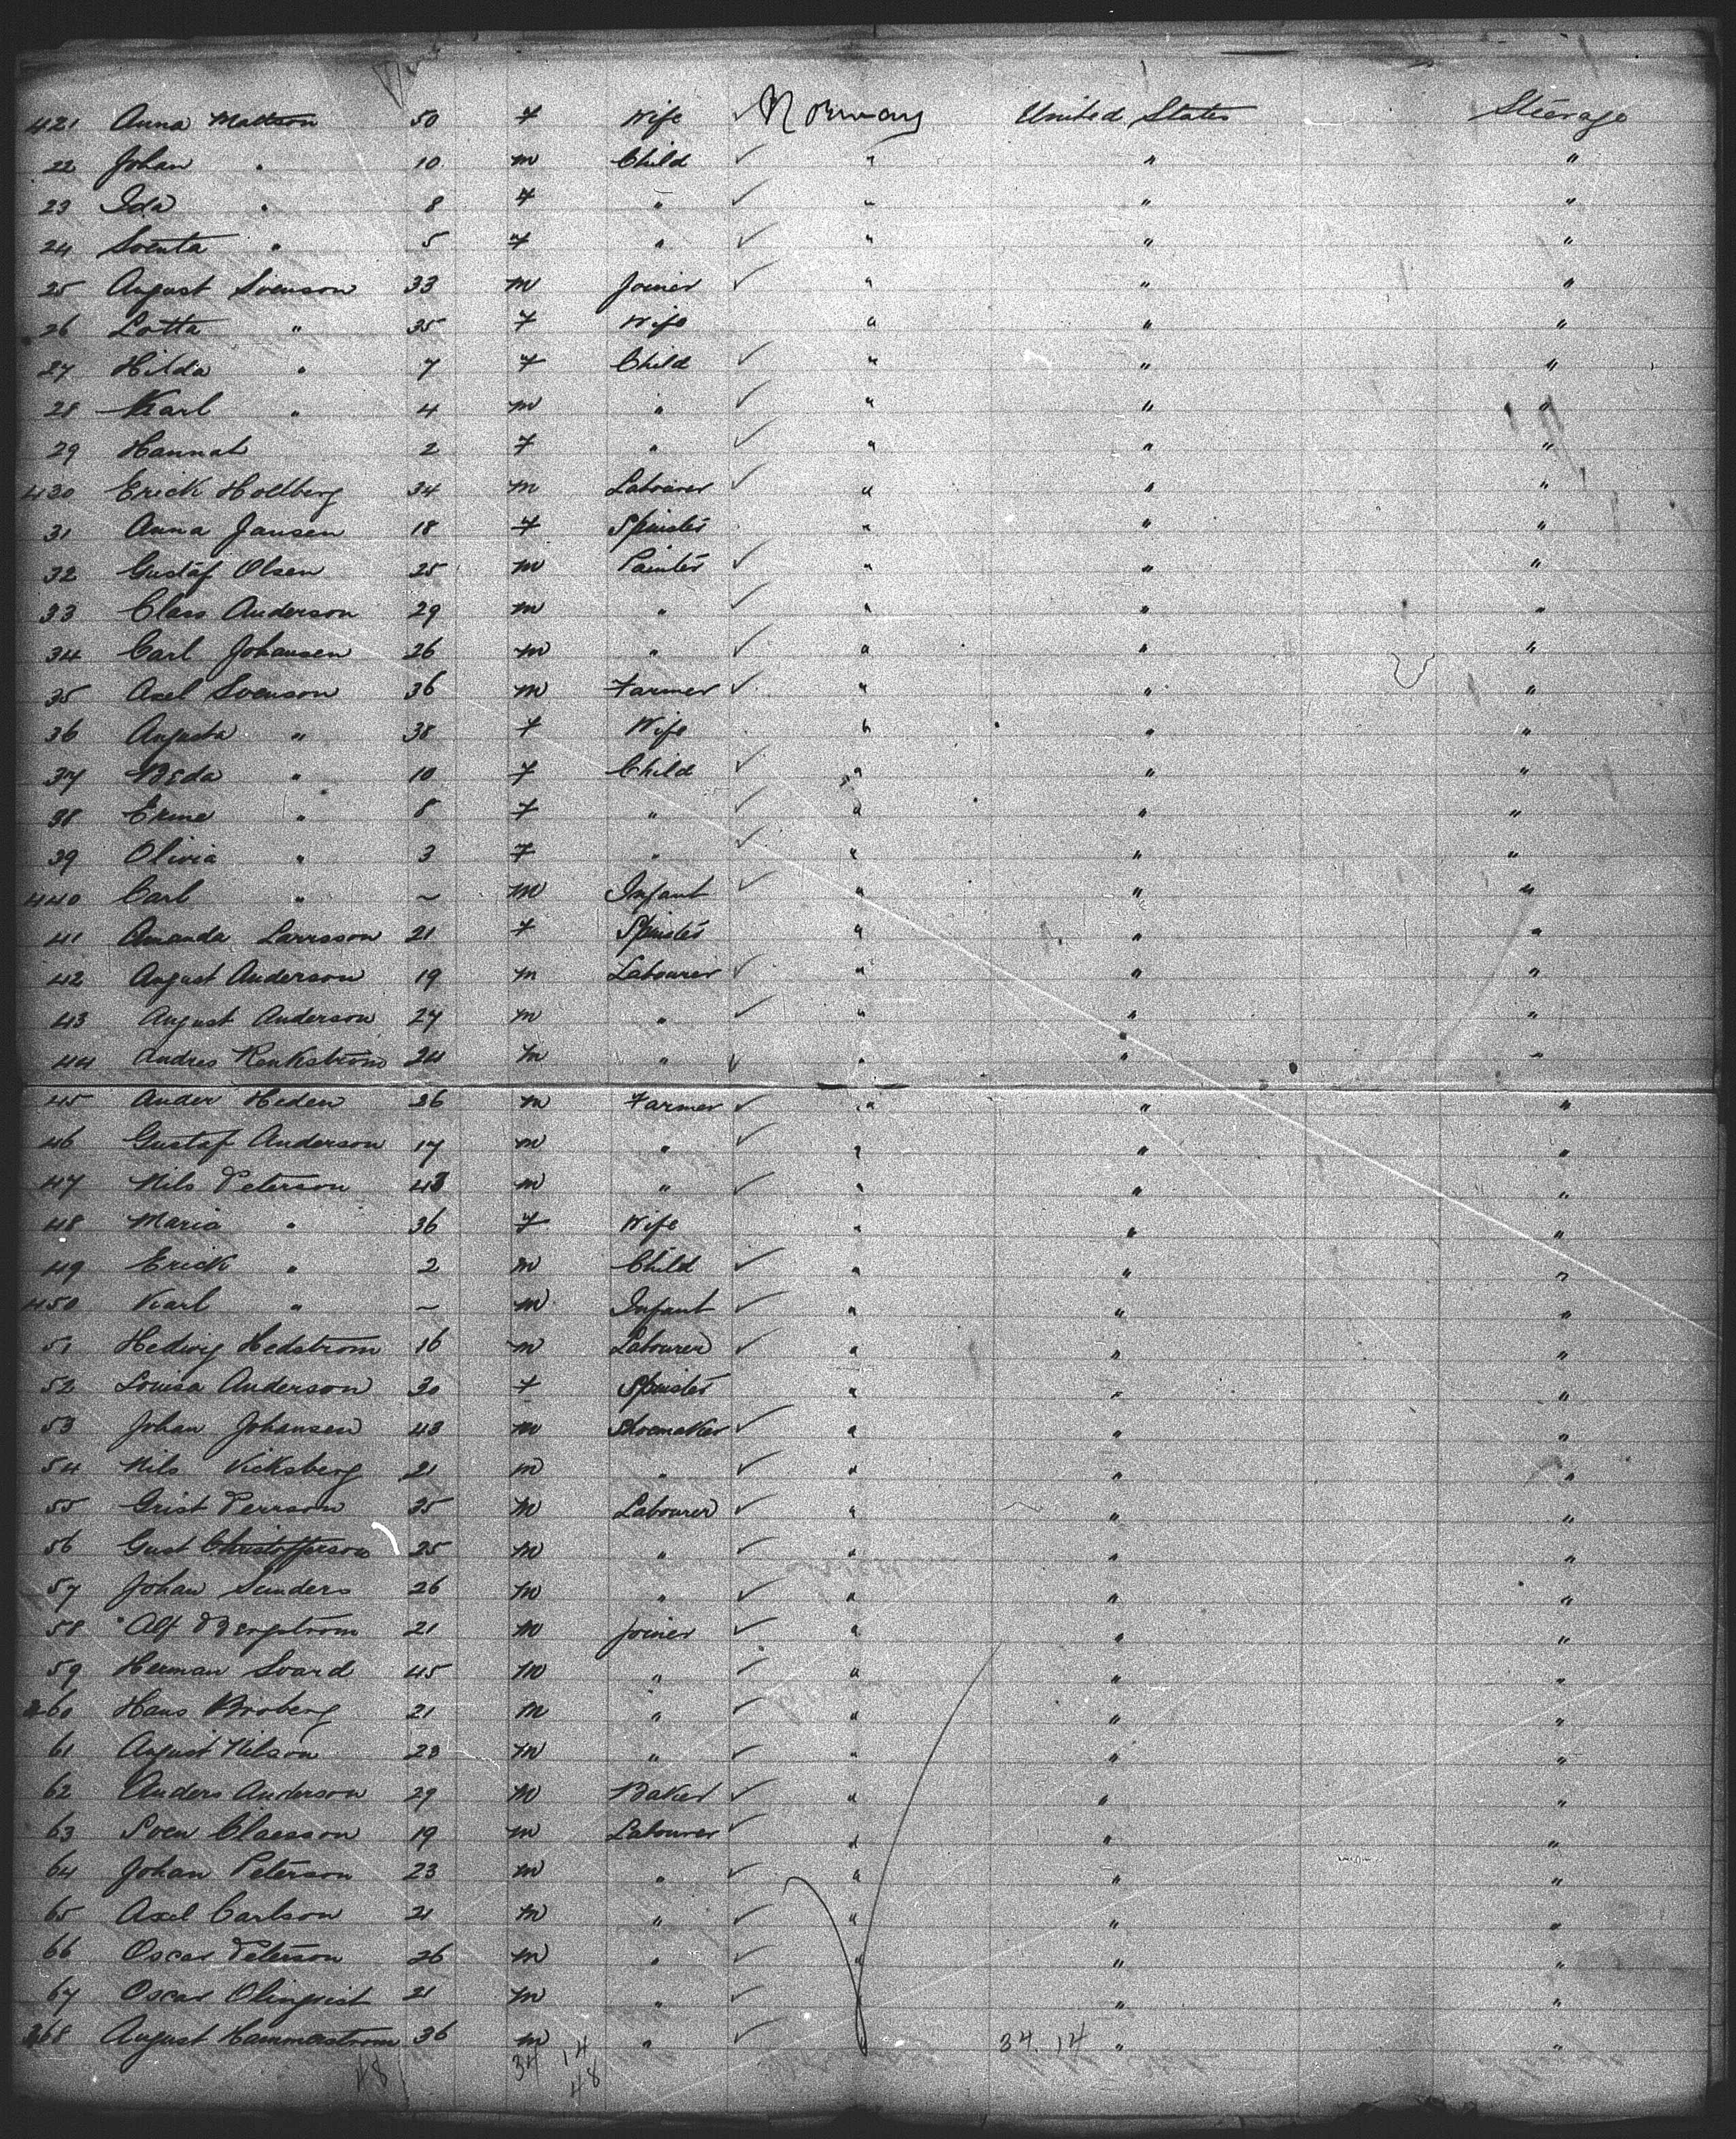 421 Anna Mattson 50 F Wife ✓ Norway United States Steerage
22 Johan " 10 m Child ✓ " " "
23 Ida " 8 F " ✓ " " "
24 Sventa " 5 F " ✓ " " "
25 August Svenson 33 m Joiner ✓ " " "
26 Lotta " 35 F Wife " " "
27 Hilda " 7 F Child ✓ " " "
28 Karl " 4 m " ✓ " " "
29 Hannah 2 F " ✓ " " "
430 Erick Hollberg 34 m Labourer ✓ " " "
31 Anna Jansen 18 F Spinster " " "
32 Gustaf Olsen 25 m Painter ✓ " " "
33 Clas Anderson 29 m " ✓ " " "
34 Carl Johansen 26 m " ✓ " " "
35 Axel Svenson 36 m Farmer ✓ " " "
36 Augusta " 38 F Wife " " "
37 Beda " 10 F Child ✓ " " "
38 " 8 F " ✓ " " "
39 Olivia " 3 F " ✓ " " "
440 Carl " ~ m Infant ✓ " " "
41 Amanda Larsson 21 F Spinster " " "
42 August Anderson 19 m Labourer ✓ " " "
43 August Anderson 27 m " ✓ " " "
44 Andres 24 m " ✓ " " "
45 Ander Heden 36 m Farmer ✓ " " "
46 Gustaf Anderson 17 m " ✓ " " "
47 Nils Peterson 43 m " ✓ " " "
48 Maria " 36 F Wife " " "
49 Erick " 2 m Child ✓ " " "
450 Karl " ~ m Infant ✓ " " "
51 Hedwig Hedstrom 16 m Labourer ✓ " " "
52 Louisa Anderson 30 F Spinster " " "
53 Johan Johansen 43 m Shoemaker ✓ " " "
54 Nils Vicksberg 21 m " ✓ " " "
55 Grist Perrson 35 m Labourer ✓ " " "
56 Gust Christofferson 25 m " ✓ " " "
57 Johan Sunders 26 m " ✓ " " "
58 Alf Bergstrom 21 m Joiner ✓ " " "
59 Herman Svard 45 m " ✓ " " "
460 Hans Broberg 21 m " ✓ " " "
61 August Nilson 23 m " ✓ " " "
62 Anders Anderson 29 m Baker ✓ " " "
63 Sven Claesson 19 m Labourer ✓ " " "
64 Johan Peterson 23 m " ✓ " " "
65 Axel Carlson 21 m " ✓ " " "
66 Oscar Peterson 26 m " ✓ " " "
67 Oscar Olinqvist 21 m " ✓ " " "
468 August Hammarstrom 36 m " ✓ 34.14 " "
34 14
48 48